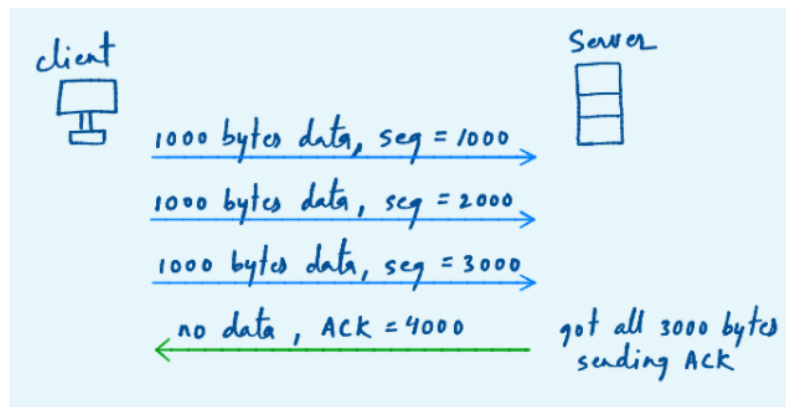 client
Server
1000 bytes data, seq = 1000
1000 bytes data, seq = 2000
1000 bytes data, seq = 3000
no data, ACK = 4000
got all 3000 bytes
sending ACK